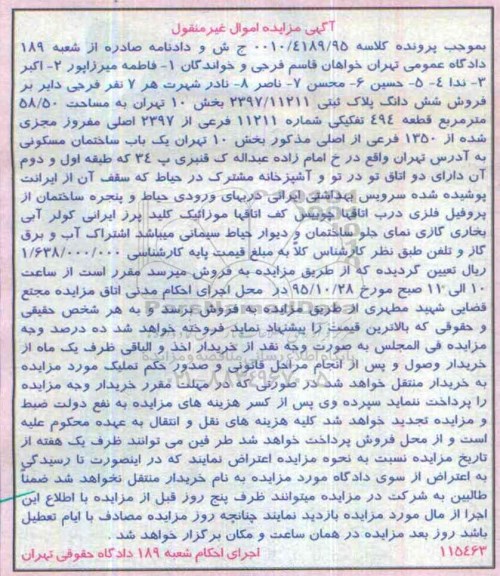 آگهی مزایده اموال غیرمنقول
بموجب پرونده کلاسه ۰۰۱۰/۴۱۸۹/۹۵ ج ش و دادنامه صادره از شعبه ۱۸۹
دادگاه عمومی تهران خواهان قاسم فرجی و خواندگان ۱- فاطمه میرزاپور ۲- اکبر
۳- ندا ۴- ۵- حسین ۶- محسن ۷- ناصر ۸- نادر شهرت هر ۷ نفر فرجی دایر بر
فروش شش دانگ پلاک ثبتی ۲۳۹۷/۱۱۲۱۱ بخش ۱۰ تهران به مساحت ۵۸/۵۰
مترمربع قطعه ۴۹۴ تفکیکی شماره ۱۱۲۱۱ فرعی از ۲۳۹۷ اصلی مفروز مجزی
شده از ۱۳۵۰ فرعی از اصلی مذکور بخش ۱۰ تهران یک باب ساختمان مسکونی
به آدرس تهران واقع در خ امام زاده عبداله ک قنبری پ ۳۴ که طبقه اول و دوم
آن دارای دو اتاق تو در تو و آشپزخانه مشترک در حیاط که سقف آن از ایرانت
پوشیده شده سرویس بهداشتی ایرانی دربهای ورودی حیاط و پنجره ساختمان از
پروفیل فلزی درب اتاقها چوبی کف اتاقها موزائیک کلید پرز ایرانی کولر آبی
بخاری گازی نمای جلو ساختمان و دیوار حیاط سیمانی میباشد اشتراک آب و برق
گاز و تلفن طبق نظر کارشناس کلاً به مبلغ قیمت پایه کارشناسی ۱/۶۳۸/۰۰۰/۰۰۰
ریال تعیین گردیده که از طریق مزایده به فروش میرسد مقرر است از ساعت
۱۰ الی ۱۱ صبح مورخ ۹۵/۱۰/۲۸ در محل اجرای احکام مدنی اتاق مزایده مجتمع
قضایی شهید مطهری از طریق مزایده به فروش برسد و به هر شخص حقیقی
و حقوقی که بالاترین قیمت را پیشنهاد نماید فروخته خواهد شد ده درصد وجه
مزایده فی المجلس به صورت وجه نقد از خریدار اخذ و الباقی ظرف یک ماه از
خریدار وصول و پس از انجام مراحل قانونی و صدور حکم تملیک مورد مزایده
به خریدار منتقل خواهد شد در صورتی که در مهلت مقرر خریدار وجه مزایده
را پرداخت ننماید سپرده وی پس از کسر هزینه های مزایده به نفع دولت ضبط
و مزایده تجدید خواهد شد کلیه هزینه های نقل و انتقال به عهده محکوم علیه
است و از محل فروش پرداخت خواهد شد طر فین می توانند ظرف یک هفته از
تاریخ مزایده نسبت به نحوه مزایده اعتراض نمایند که در اینصورت تا رسیدگی
به اعتراض از سوی دادگاه مورد مزایده به نام خریدار منتقل نخواهد شد ضمناً
طالبین به شرکت در مزایده میتوانند ظرف پنج روز قبل از مزایده با اطلاع این
اجرا از مال مورد مزایده بازدید نمایند چنانچه روز مزایده مصادف با ایام تعطیل
باشد روز بعد مزایده در همان ساعت و مکان برگزار خواهد شد .
۱۱۵۴۶۳ اجرای احکام شعبه ۱۸۹ دادگاه حقوقی تهران